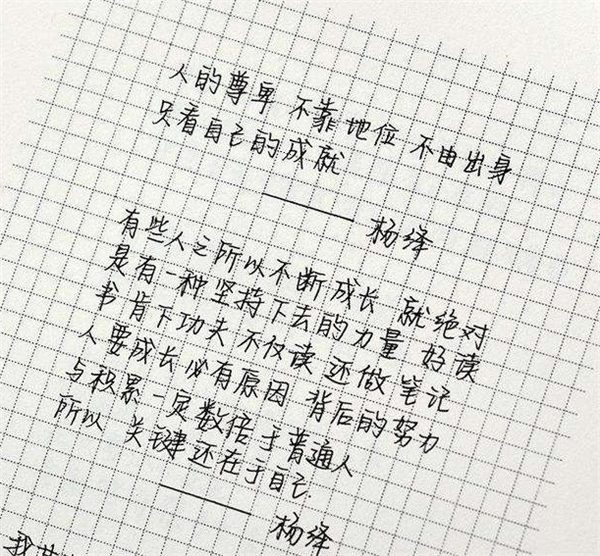 人的尊卑 不靠地位 不由出身
只看自己的成就
——杨绛
有些人之所以不断成长 就绝对
是有一种坚持下去的力量 好读
书肯下功夫 不仅读 还做笔记
人要成长必有原因 背后的努力
与积累一定数倍于普通人
所以 关键还在于自己.
——杨绛